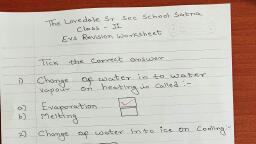 The Lovedale Sr Sec School Satna
Class - II
Evs Revision Worksheet
Tick the correct answer
1) Change of water in to water
vapour on heating is called :-
a) Evaporation
b) Melting
2) Change of water into ice on Cooling:-